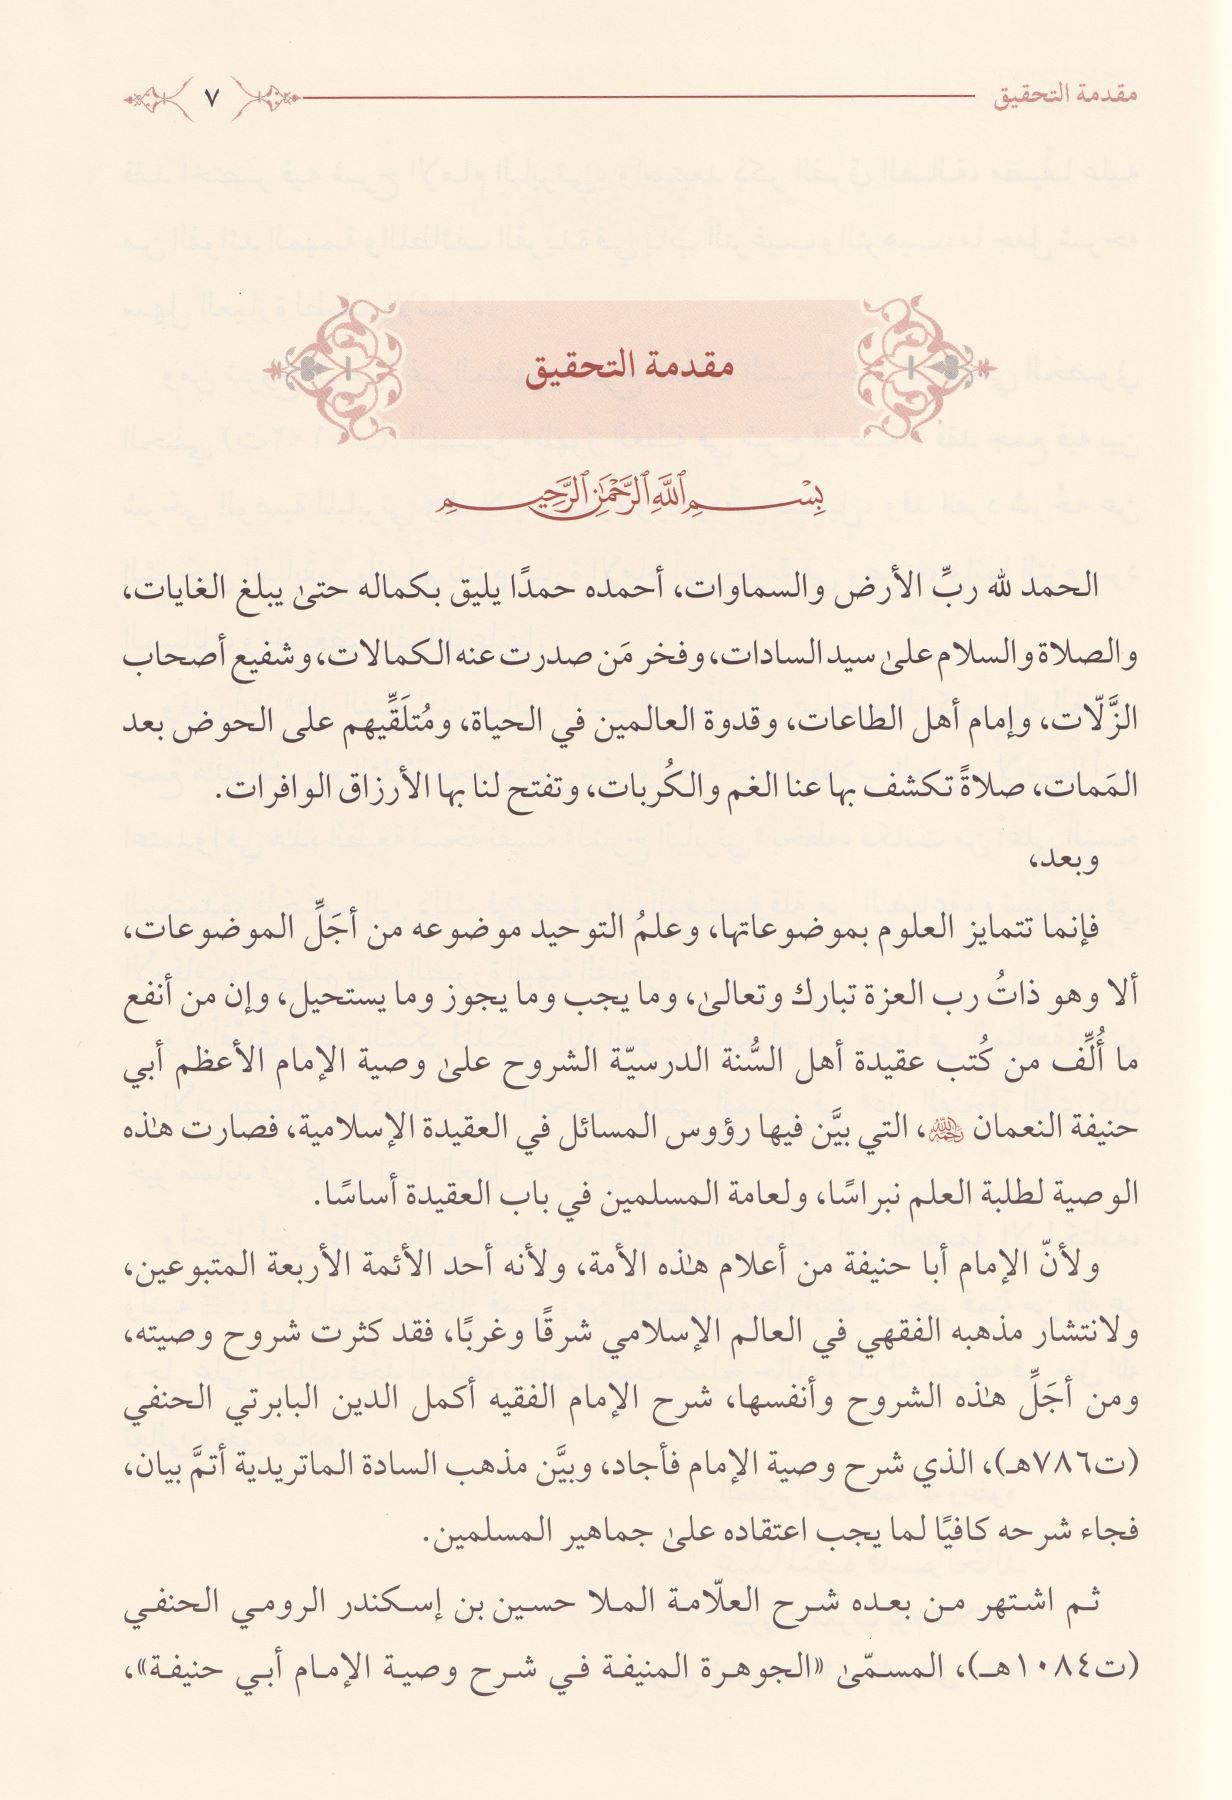 مقدمة التحقيق ٧
مقدمة التحقيق
بسم الله الرحمن الرحيم
الحمد لله ربِّ الأرض والسماوات، أحمده حمدًا يليق بكماله حتىٰ يبلغ الغايات،
والصلاة والسلام علىٰ سيد السادات، وفخر مَن صدرت عنه الكمالات، وشفيع أصحاب
الزَّلّات، وإمام أهل الطاعات، وقدوة العالمين في الحياة، ومُتلَقِّيهم على الحوض بعد
المَمات، صلاةً تكشف بها عنا الغم والكُربات، وتفتح لنا بها الأرزاق الوافرات.
وبعد،
فإنما تتمايز العلوم بموضوعاتها، وعلمُ التوحيد موضوعه من أجَلِّ الموضوعات،
ألا وهو ذاتُ رب العزة تبارك وتعالىٰ، وما يجب وما يجوز وما يستحيل، وإن من أنفع
ما أُلِّف من كُتب عقيدة أهل السُّنة الدرسيّة الشروح علىٰ وصية الإمام الأعظم أبي
حنيفة النعمان رحمه الله، التي بيَّن فيها رؤوس المسائل في العقيدة الإسلامية، فصارت هٰذه
الوصية لطلبة العلم نبراسًا، ولعامة المسلمين في باب العقيدة أساسًا.
ولأنّ الإمام أبا حنيفة من أعلام هٰذه الأمة، ولأنه أحد الأئمة الأربعة المتبوعين،
ولانتشار مذهبه الفقهي في العالم الإسلامي شرقًا وغربًا، فقد كثرت شروح وصيته،
ومن أجَلِّ هٰذه الشروح وأنفسها، شرح الإمام الفقيه أكمل الدين البابرتي الحنفي
(ت٧٨٦هـ)، الذي شرح وصية الإمام فأجاد، وبيَّن مذهب السادة الماتريدية أتمَّ بيان،
فجاء شرحه كافيًا لما يجب اعتقاده علىٰ جماهير المسلمين.
ثم اشتهر من بعده شرح العلّامة الملا حسين بن إسكندر الرومي الحنفي
(ت١٠٨٤هـ)، المسمّىٰ «الجوهرة المنيفة في شرح وصية الإمام أبي حنيفة»،